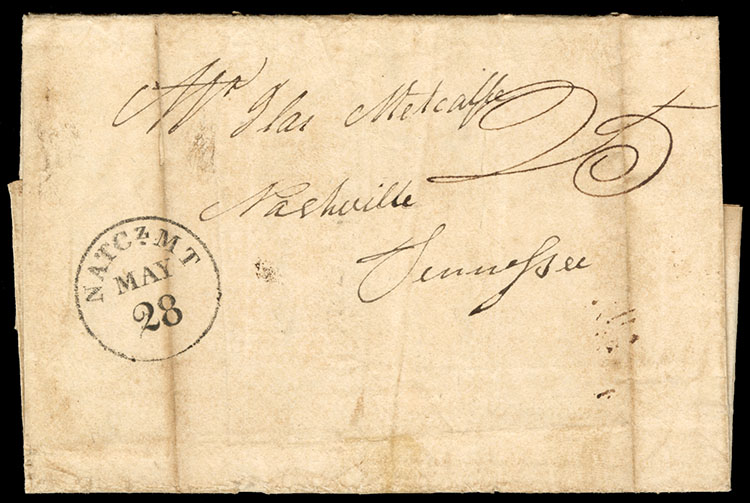 Mr Ilai Metcalfe 25
Nashville
Tennessee
NATCz MT
MAY
28